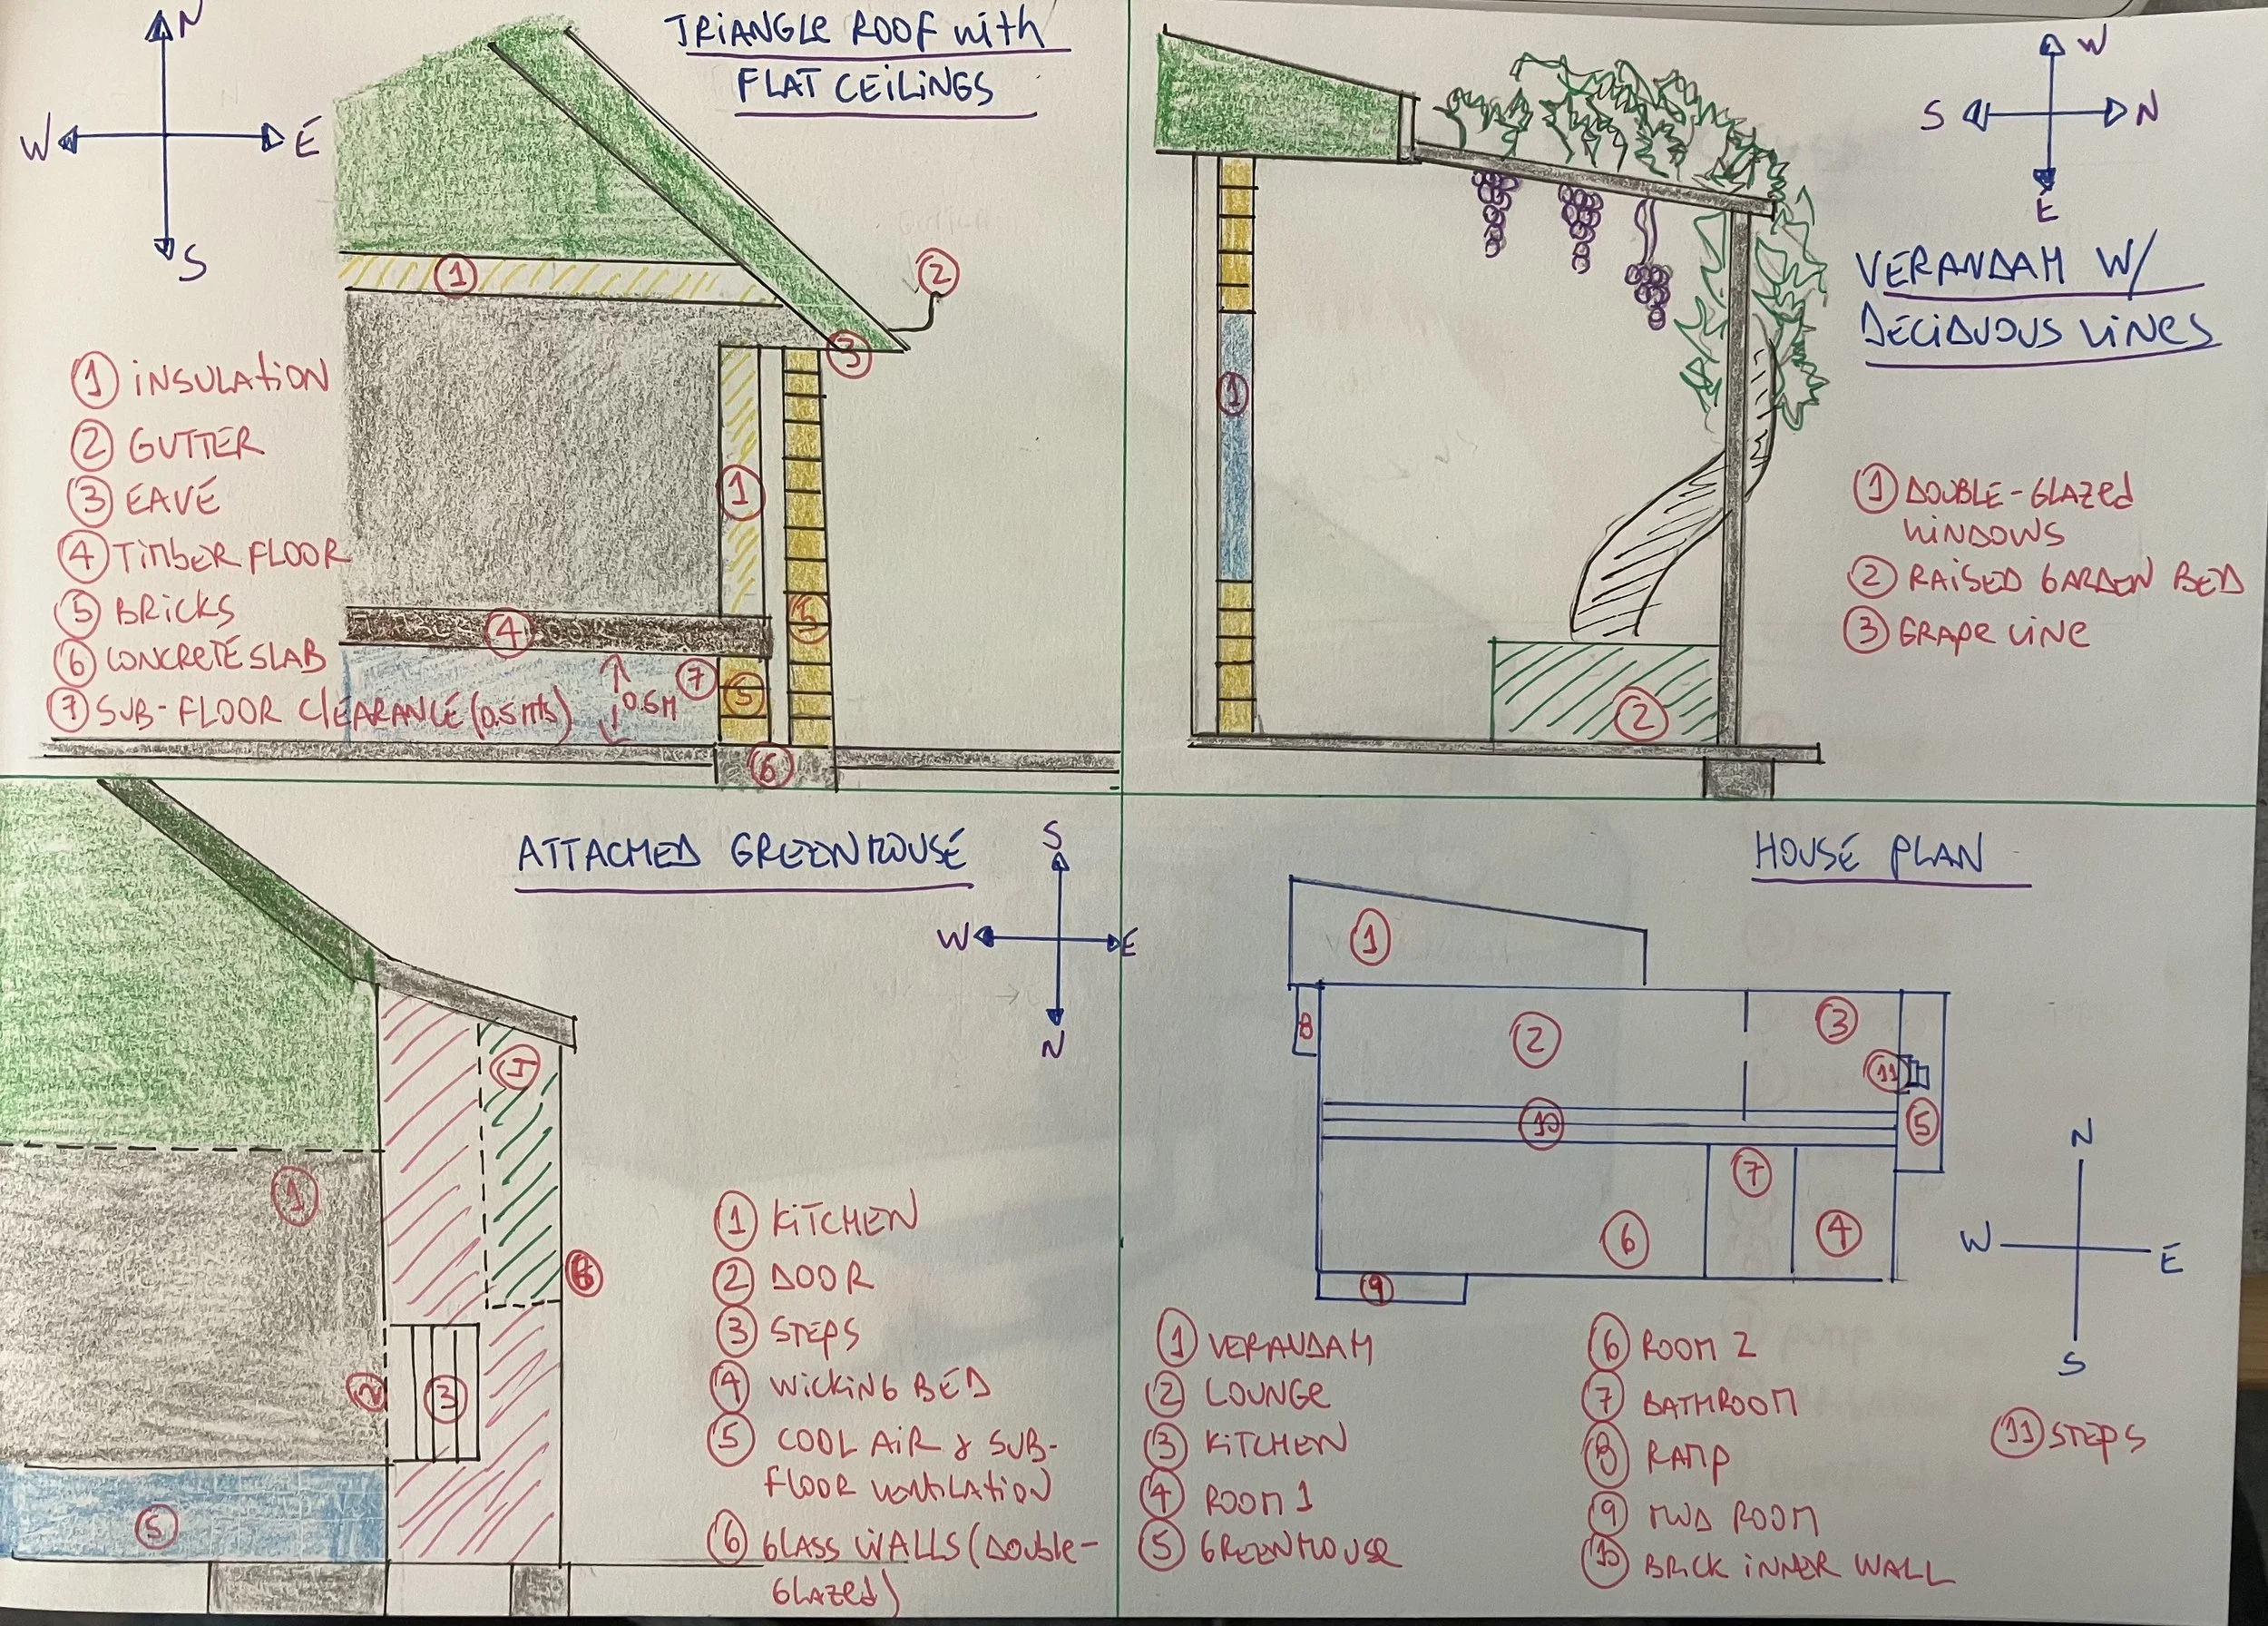 TRIANGLE ROOF with
FLAT CEILINGS
N
W
E
S
1
2
3
1
4
5
7
5
0.5M
6
1 INSULATION
2 GUTTER
3 EAVE
4 TIMBER FLOOR
5 BRICKS
6 CONCRETE SLAB
7 SUB-FLOOR CLEARANCE (0.5mts)
W
S
N
E
VERANDAH W/
DECIDUOUS VINES
1
2
1 DOUBLE-GLAZED
WINDOWS
2 RAISED GARDEN BED
3 GRAPE VINE
ATTACHED GREENHOUSE
S
W
E
N
1
2
3
6
5
1 KITCHEN
2 DOOR
3 STEPS
4 WICKING BED
5 COOL AIR & SUB-
FLOOR VENTILATION
6 GLASS WALLS (DOUBLE-
GLAZED)
HOUSE PLAN
1
8
2
3
11
10
5
7
6
4
9
N
W
E
S
1 VERANDAH
2 LOUNGE
3 KITCHEN
4 ROOM 1
5 GREENHOUSE
6 ROOM 2
7 BATHROOM
8 RAMP
9 MUD ROOM
10 BRICK INNER WALL
11 STEPS